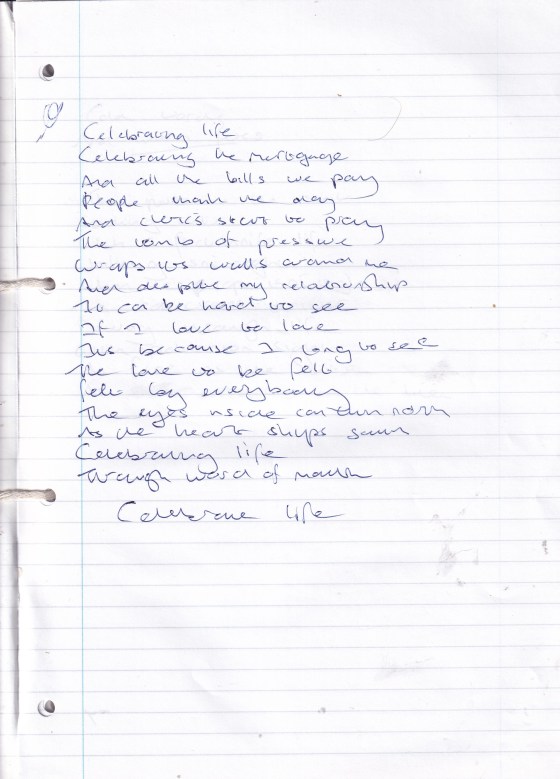 Celebrating life
Celebrating the mortgage
And all the bills we pay
People mark the day
And clerics start to pray
The tomb of pressure
Wraps its walls around me
And despite my relationship
It can be hard to see
If I love to love
Its because I long to see
The love to be felt
felt by everybody
The eyes inside north
As the heart ships south
Celebrating life
Through word of mouth
Celebrate life